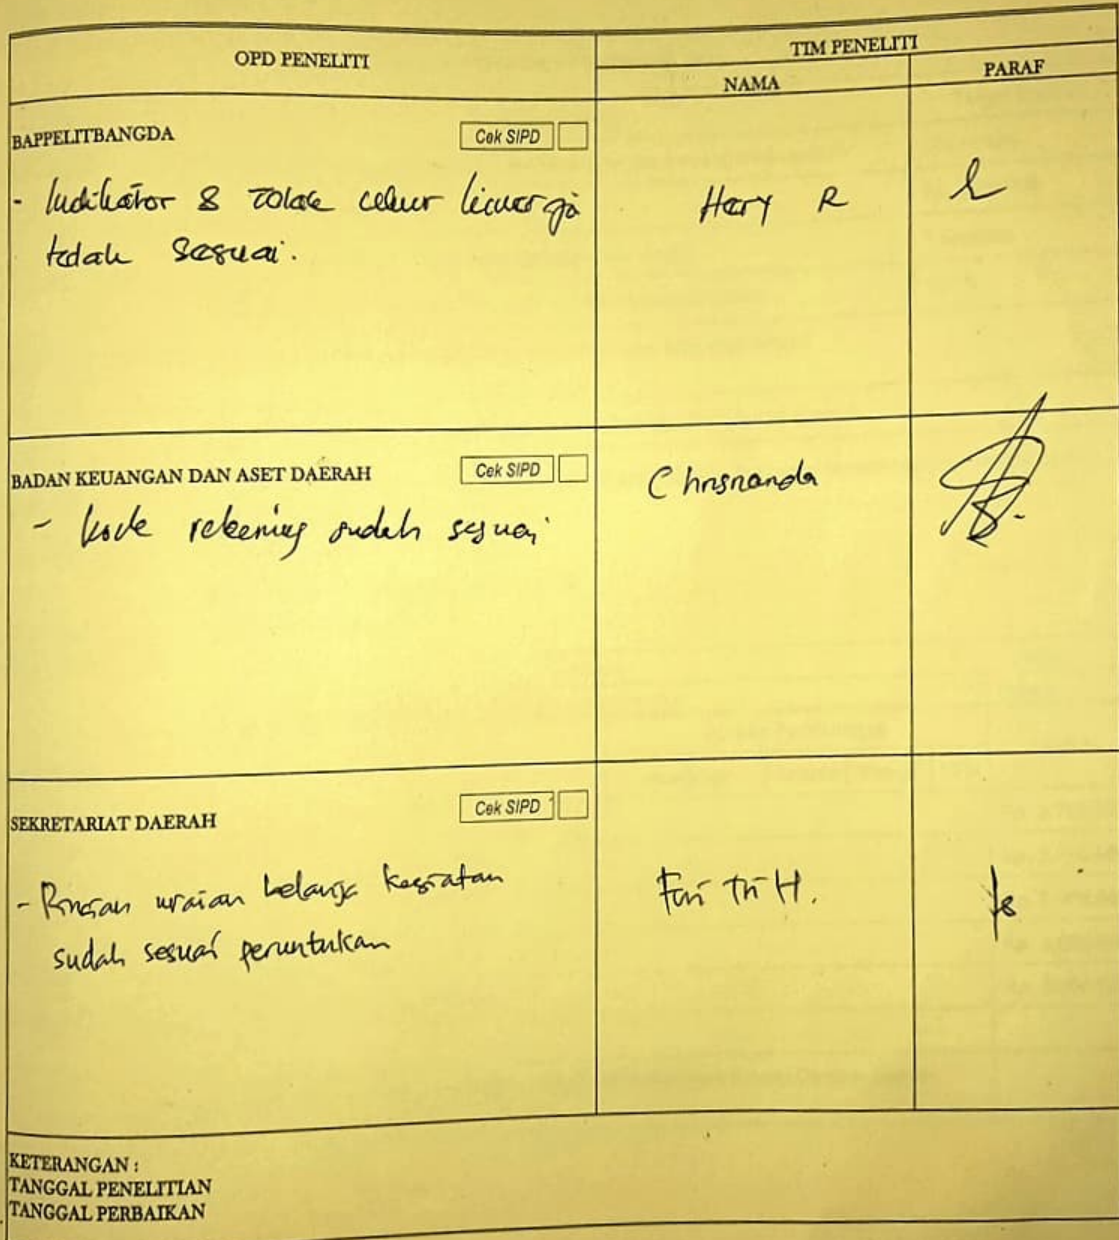 OPD PENELITI
TIM PENELITI
NAMA
PARAF
BAPPELITBANGDA
Cek SIPD
- Indikator & tolak ukur kinerja
tidak sesuai.
Hary R
BADAN KEUANGAN DAN ASET DAERAH
Cek SIPD
- kode rekening sudah sesuai
Chrisnanda
SEKRETARIAT DAERAH
Cek SIPD
- Rincian uraian belanja kegiatan
sudah sesuai peruntukan
Tri H.
KETERANGAN :
TANGGAL PENELITIAN
TANGGAL PERBAIKAN